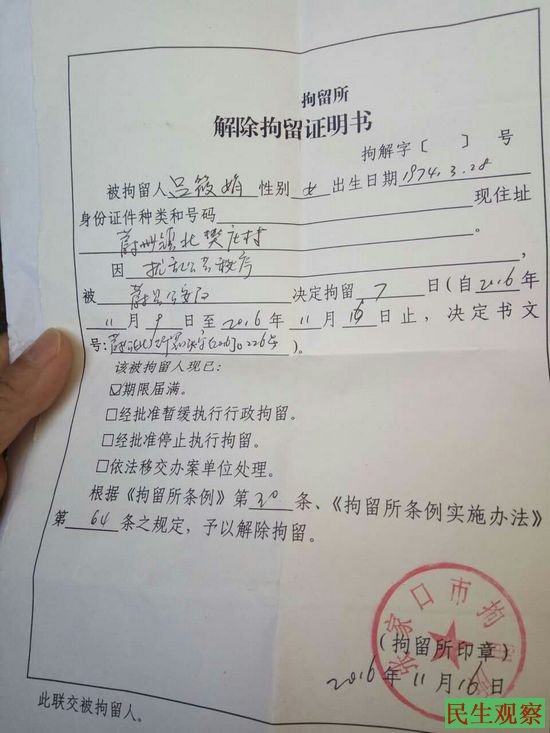 拘留所
解除拘留证明书
拘解字〔 〕 号
被拘留人吕筱娟 性别女 出生日期1974.3.28
身份证件种类和号码 现住址
蔚州镇北樊庄村。
因 扰乱公共秩序,
被 蔚县公安局 决定拘留7日(自2016年
11月9日至2016年11月16日止,决定书文
号: )。
该被拘留人现已:
☑期限届满。
□经批准暂缓执行行政拘留。
□经批准停止执行拘留。
□依法移交办案单位处理。
根据《拘留所条例》第30条、《拘留所条例实施办法》
第64条之规定,予以解除拘留。
张家口市拘留所
(拘留所印章)
2016年11月16日
此联交被拘留人。
民生观察